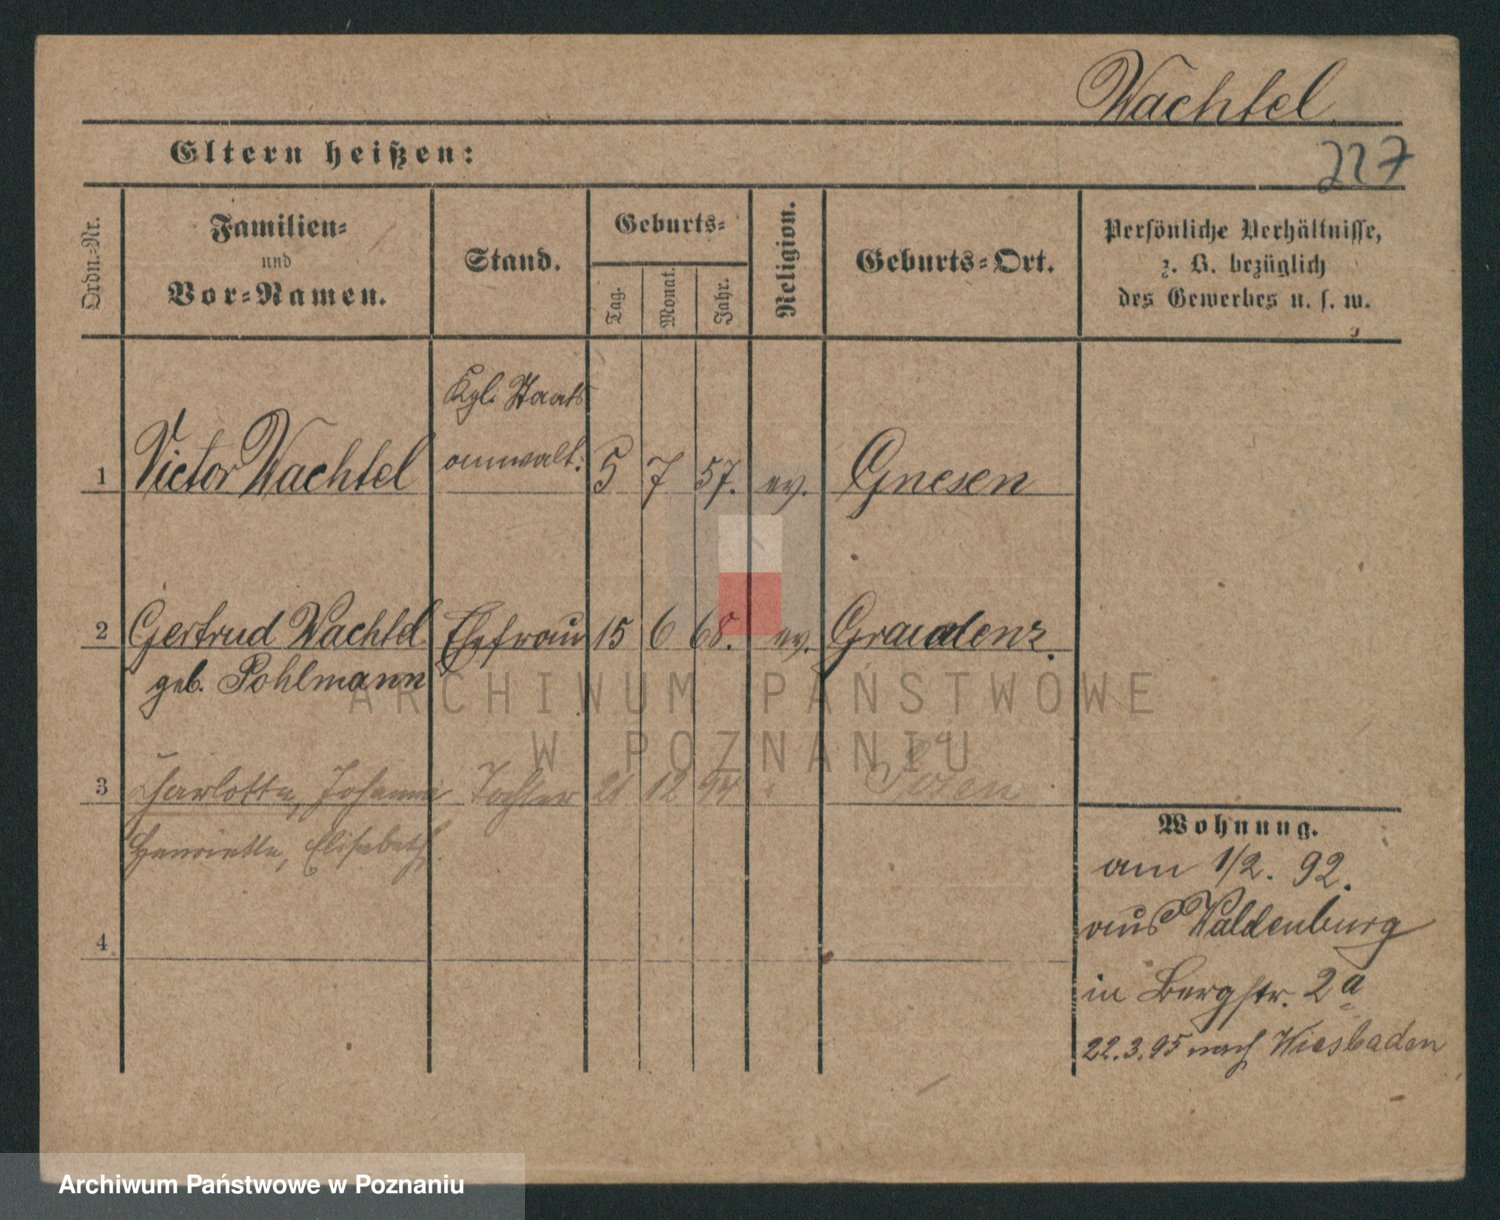 Wachtel.
Eltern heißen:
227
Ordn.-Nr.
Familien-
und
Vor-Namen.
Stand.
Geburts-
Tag.
Monat.
Jahr.
Religion.
Geburts-Ort.
Persönliche Verhältnisse,
z. B. bezüglich
des Gewerbes u. s. w.
Kgl. Staats
anwalt.
1 Victor Wachtel 5 7 57. ev. Gnesen
2 Gertrud Wachtel Ehefrau 15 6 68. ev. Graudenz.
geb. Pohlmann
3 Charlotte, Johanna Tochter 21 12 94 Posen
Henriette, Elisabeth.
4
Wohnung.
am 1/2. 92.
aus Waldenburg
in Bergstr. 2a
22.3.95 nach Wiesbaden
ARCHIWUM PAŃSTWOWE
W POZNANIU
Archiwum Państwowe w Poznaniu